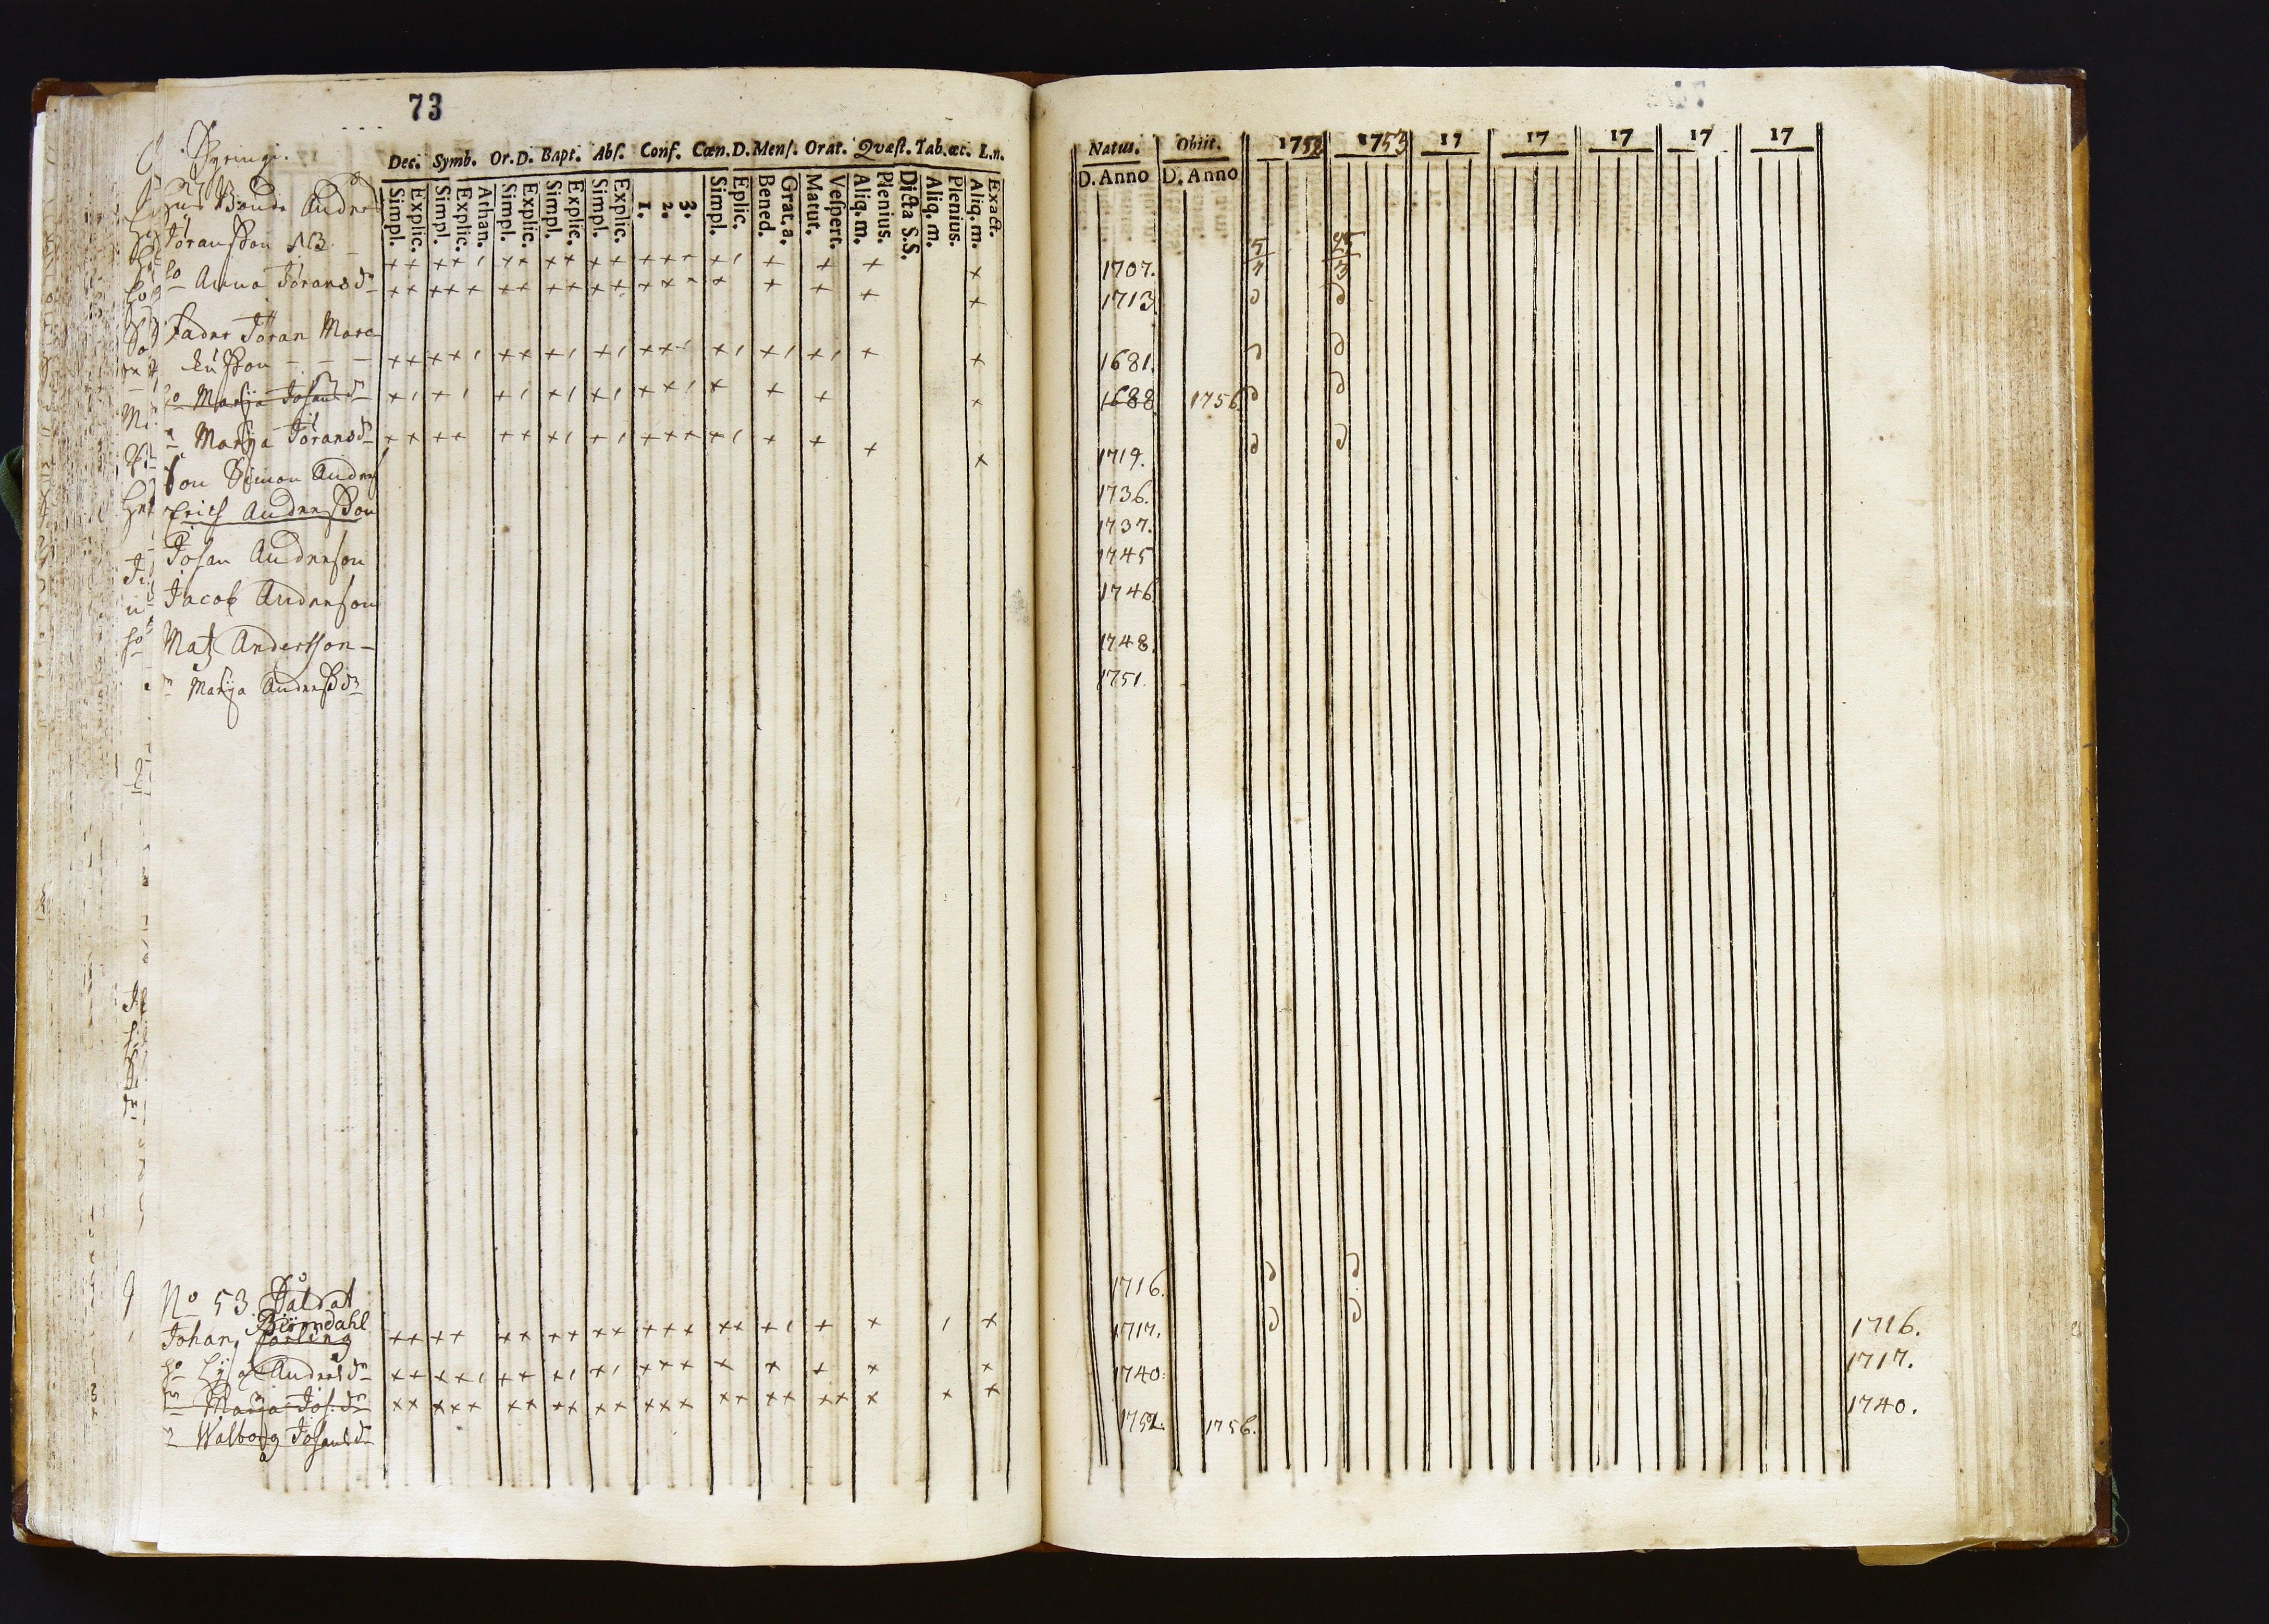 73
Syringi.
Dec. Symb. Or. D. Bapt. Abſ. Conf. Cœn. D. Menſ. Orat. Qvæſt. Tab. œc. L.n.
Simpl. Explic. Simpl. Explic. Athan. Simpl. Explic. Simpl. Explic. Simpl. Explic. 1. 2. 3. Simpl. Eplic. Bened. Grat. a. Matut. Veſpert. Aliq. m. Plenius. Dicta S.S. Aliq. m. Plenius. Aliq. m. Exact.
Bonde Anders
Jöransson NB
ho Anna Jöransdr
Fader Jöran Marc
kusson - - -
ho Marja Johansdr
Marja Jöransdr
Son Simon Anders
Erich Andersson
Johan Anderson
Jacob Anderson
Mats Andersson -
Marja Andersdr
No 53. Saldat
Biörndahl
Johan Färling
ho Lisa Andersdr
Maria Joh.dr
Walborg Johansdr
Natus. Obiit. 1752 1753 17 17 17 17 17
D. Anno D. Anno
5/4 25/3
1707.
1713.
1681.
1688. 1756.
1719.
1736.
1737.
1745
1746.
1748.
1751.
1716.
1717. 1716.
1740. 1717.
1752. 1756. 1740.